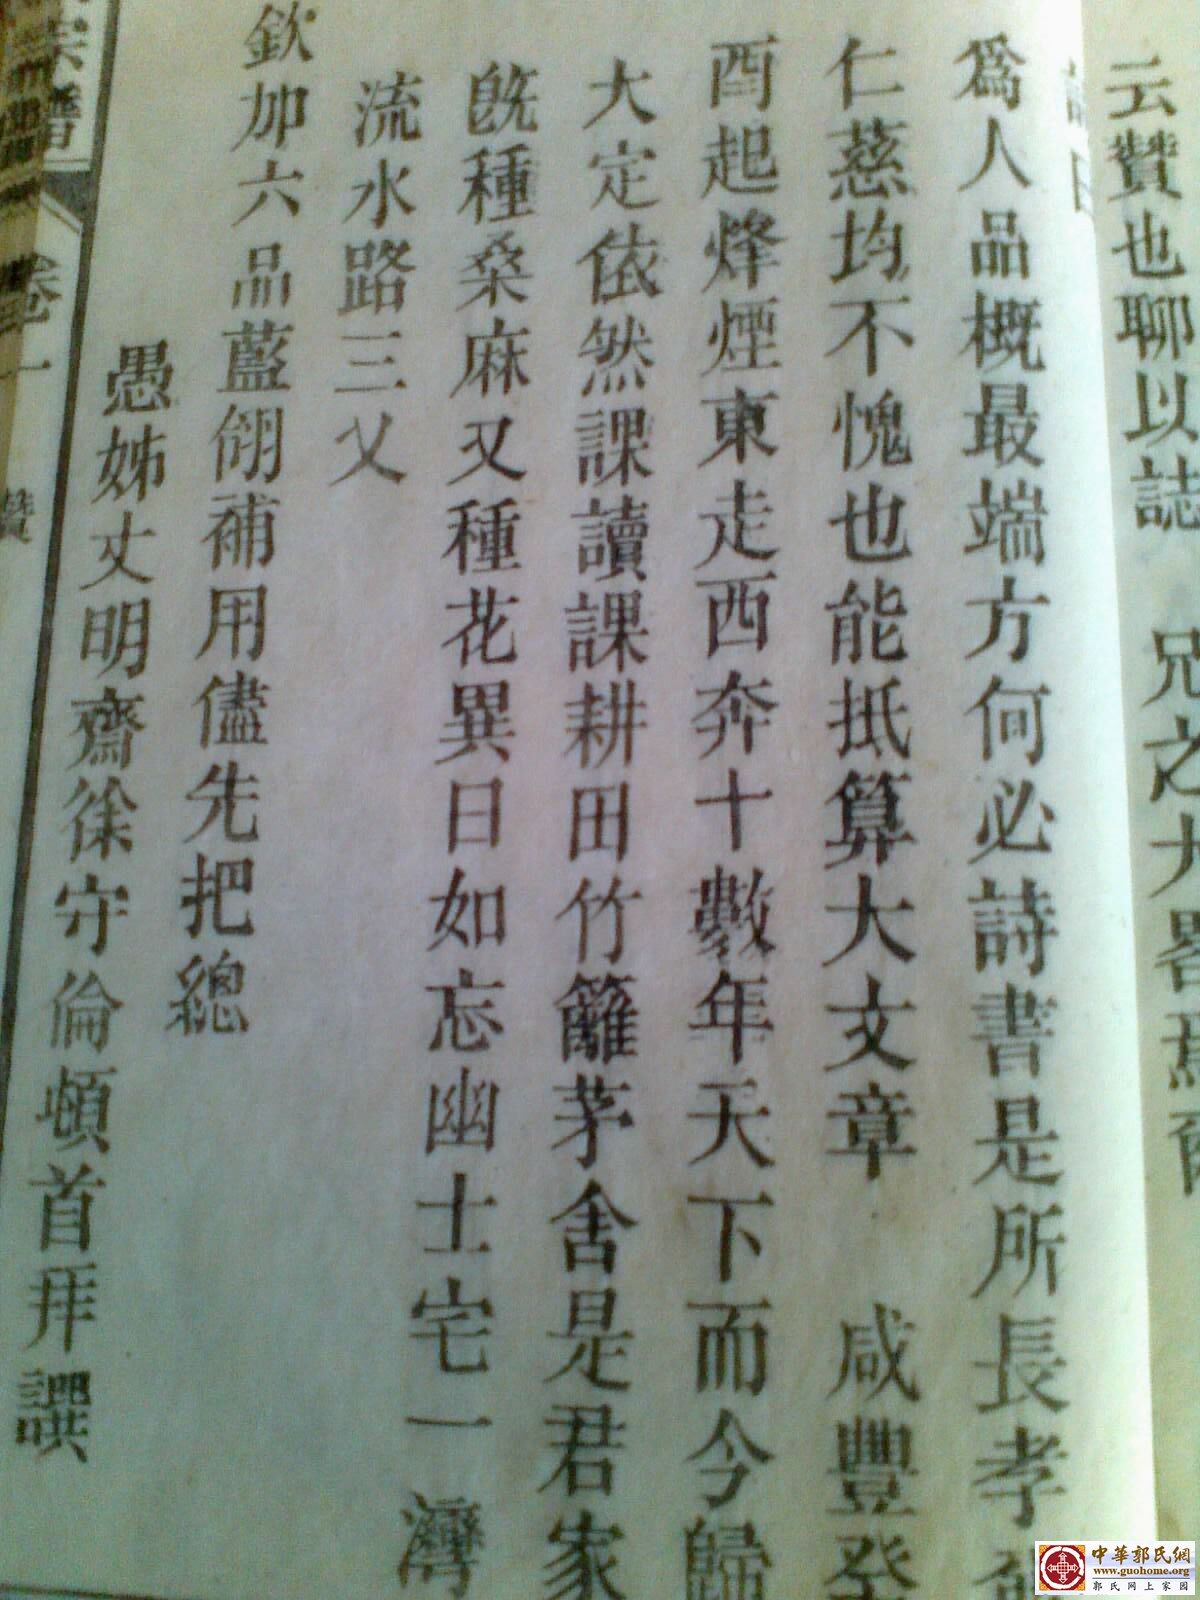 云贊也聊以誌 兄之大畧焉爾
爲人品概最端方何必詩書是所長孝
仁慈均不愧也能抵算大文章 咸豐癸
酉起烽煙東走西奔十數年天下而今歸
大定依然課讀課耕田竹籬茅舍是君家
旣種桑麻又種花異日如忘幽士宅一灣
流水路三乂
欽加六品藍翎補用儘先把總
愚姊丈明齋徐守倫頓首拜譔
宗譜
卷一
贊
中華郭氏網
www.guohome.org
郭氏网上家园